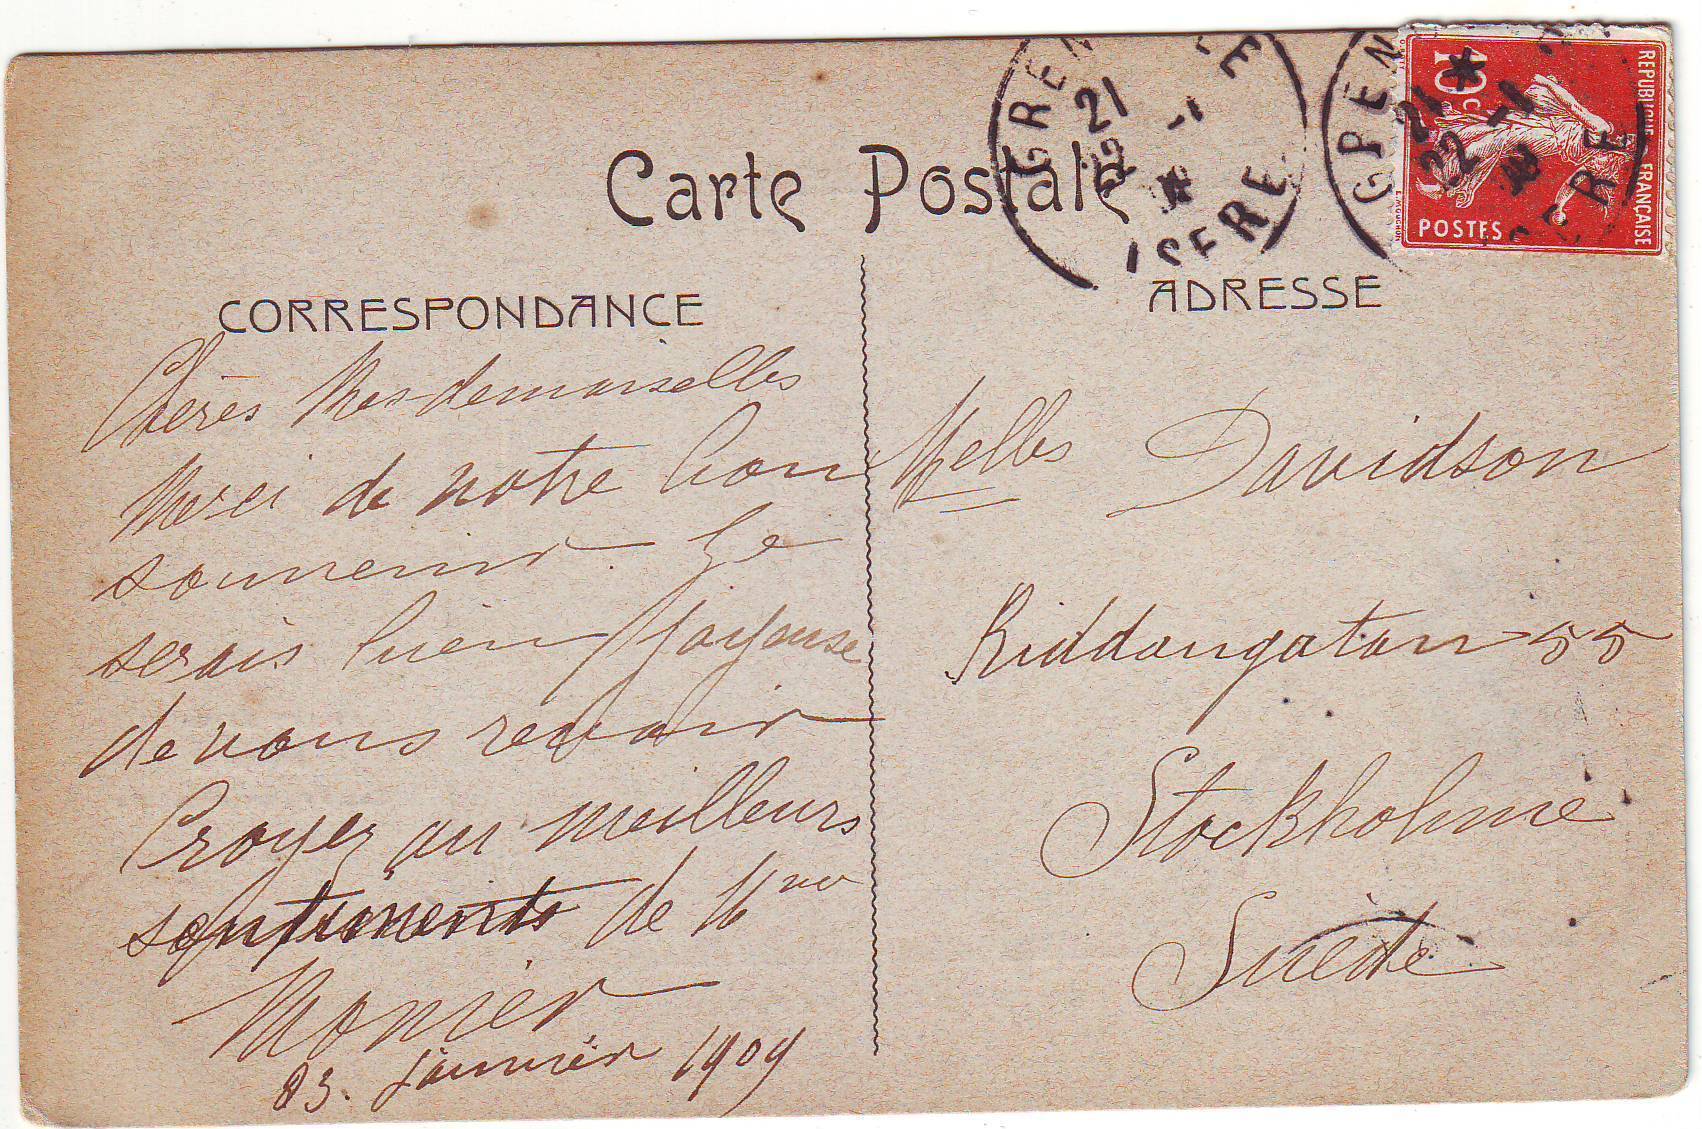 Carte Postale
GREN
21
22 -1
ISERE
GREN
21 *
22 -1
ISERE
10 c
REPUBLIQUE FRANÇAISE
POSTES
L. MOUCHON
CORRESPONDANCE
Chères Mesdemoiselles
Merci de notre bon
souvenir. Je
serais bien joyouse
de vous revoir
Croyez au meilleurs
sentiments de Mme
Monier
23. janvier 1909
ADRESSE
Melles Davidson
Riddongatan 55
Stockholme
Suède